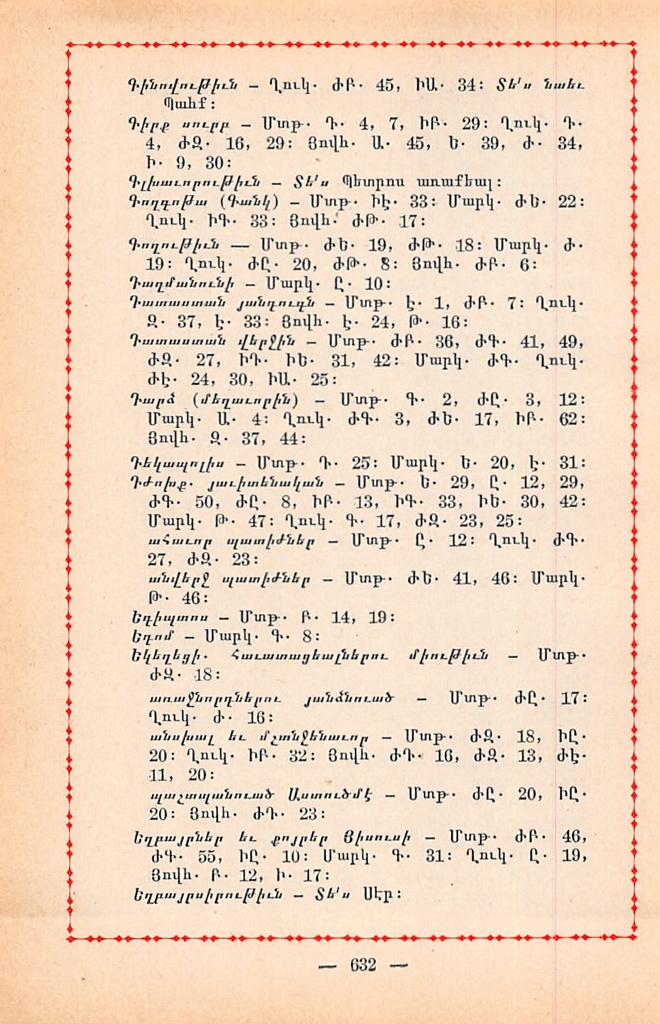 Գինովութիւն – Ղուկ. ԺԲ. 45, ԻԱ. 34: Տե՛ս նաեւ
Պահք:
Գիրք սուրբ – Մտթ. Դ. 4, 7, ԻԲ. 29: Ղուկ. Դ.
4, ԺԶ. 16, 29: Յովհ. Ա. 45, Ե. 39, Ժ. 34,
Ի. 9, 30:
Գլխաւորութիւն – Տե՛ս Պետրոս առաքեալ:
Գողգոթա (Գանկ) – Մտթ. ԻԷ. 33: Մարկ. ԺԵ. 22:
Ղուկ. ԻԳ. 33: Յովհ. ԺԹ. 17:
Գողութիւն — Մտթ. ԺԵ. 19, ԺԹ. 18: Մարկ. Ժ.
19: Ղուկ. ԺԸ. 20, ԺԹ. 8: Յովհ. ԺԲ. 6:
Դաղմանունի – Մարկ. Ը. 10:
Դատաստան յանդուգն – Մտթ. Է. 1, ԺԲ. 7: Ղուկ.
Զ. 37, Է. 33: Յովհ. Է. 24, Թ. 16:
Դատաստան վերջին – Մտթ. ԺԲ. 36, ԺԳ. 41, 49,
ԺԶ. 27, ԻԴ. ԻԵ. 31, 42: Մարկ. ԺԳ. Ղուկ.
ԺԷ. 24, 30, ԻԱ. 25:
Դարձ (մեղաւորին) – Մտթ. Գ. 2, ԺԸ. 3, 12:
Մարկ. Ա. 4: Ղուկ. ԺԳ. 3, ԺԵ. 17, ԻԲ. 62:
Յովհ. Զ. 37, 44:
Դեկապոլիս – Մտթ. Դ. 25: Մարկ. Ե. 20, Է. 31:
Դժոխք. յաւիտենական – Մտթ. Ե. 29, Ը. 12, 29,
ԺԳ. 50, ԺԸ. 8, ԻԲ. 13, ԻԳ. 33, ԻԵ. 30, 42:
Մարկ. Թ. 47: Ղուկ. Գ. 17, ԺԶ. 23, 25:
ահաւոր պատիժներ – Մտթ. Ը. 12: Ղուկ. ԺԳ.
27, ԺԶ. 23:
անվերջ պատիժներ – Մտթ. ԺԵ. 41, 46: Մարկ.
Թ. 46:
Եգիպտոս – Մտթ. Բ. 14, 19:
Եդոմ – Մարկ. Գ. 8:
Եկեղեցի. հաւատացեալներու միութիւն – Մտթ.
ԺԶ. 18:
առաջնորդներու յանձնուած – Մտթ. ԺԸ. 17:
Ղուկ. Ժ. 16:
անսխալ եւ մշտնջենաւոր – Մտթ. ԺԶ. 18, ԻԸ.
20: Ղուկ. ԻԲ. 32: Յովհ. ԺԴ. 16, ԺԶ. 13, ԺԷ.
11, 20:
պաշտպանուած Աստուծմէ – Մտթ. ԺԸ. 20, ԻԸ.
20: Յովհ. ԺԴ. 23:
Եղբայրներ եւ քոյրեր Յիսուսի – Մտթ. ԺԲ. 46,
ԺԳ. 55, ԻԸ. 10: Մարկ. Գ. 31: Ղուկ. Ը. 19,
Յովհ. Բ. 12, Ի. 17:
Եղբայրսիրութիւն – Տե՛ս Սէր:
— 632 —